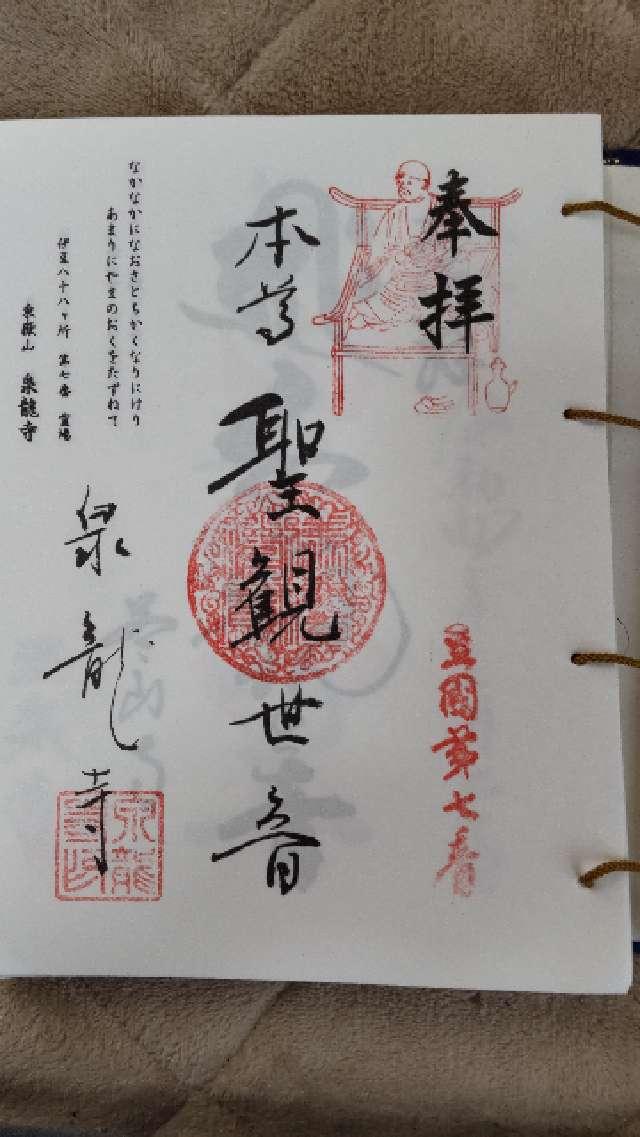 奉拝
豆国第七番
本尊 聖観世音
なかなかになおさとちかくなりにけり
あまりにやまのおくをたずねて
伊豆八十八ヶ所 第七番 霊場
東嶽山 泉龍寺
泉龍寺